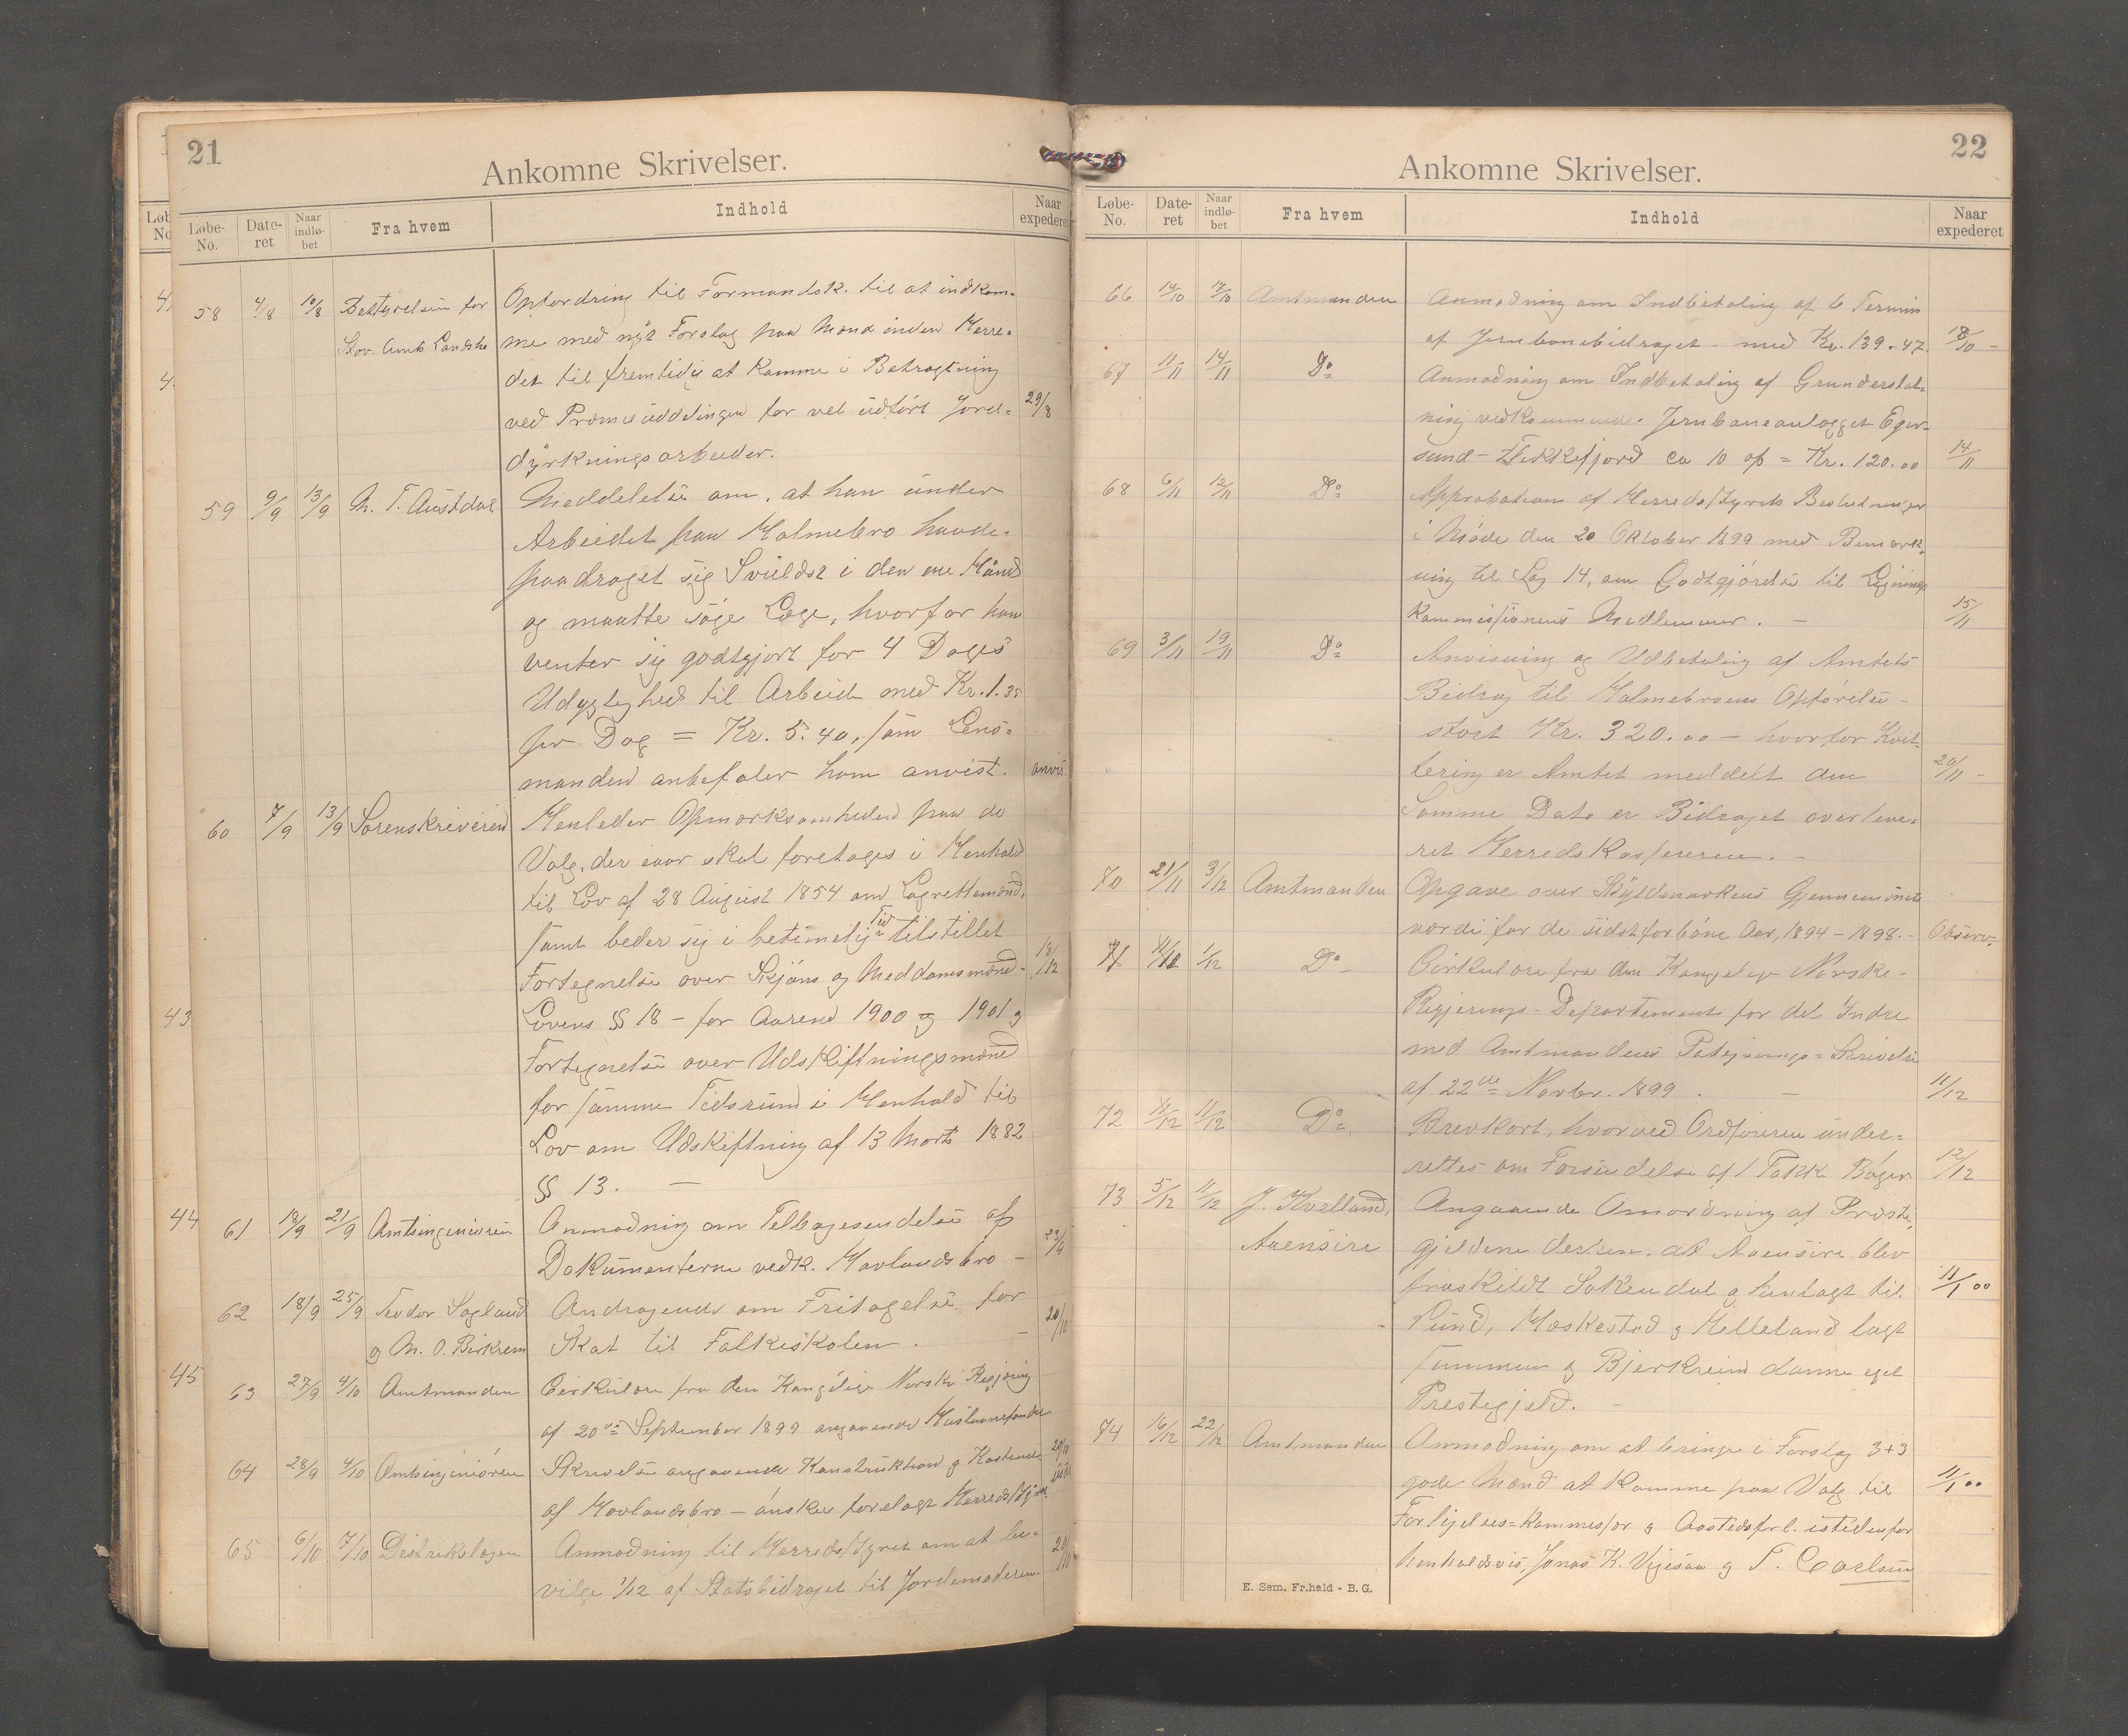 21
Ankomne Skrivelser.
Løbe-No. Date-ret Naar indlø-bet Fra hvem Indhold Naar expederet
58 4/8 10/8 Bestyrelsen for Opfordring til Formandsk. til at indkom-
Stav. Amts Landsho me med nyt Forslag paa Mænd inden Herre-
det til fremtidig at komme i Betragtning
ved Præmieuddelingen for vel udført Jord- 29/8
dyrkningsarbeider.
59 9/9 13/9 M. T. Austdal Meddelelse om, at han under
Arbeidet paa Malmebro havde
paadraget sig Svuldst i den ene Haand
og maatte søge Læge, hvorfor han
venter sig godtgjort for 4 Dages
Udygtighed til Arbeide med Kr. 1.35
pr. Dag = Kr. 5.40, som Lens-
manden anbefaler ham anvist. anvis.
60 7/9 13/9 Sorenskriveren Henleder Opmærksomheden paa de
Valg, der iaar skal foretages i Henhold
til Lov af 28 August 1854 om Lagrettemænd,
samt beder sig i betimelig Tid tilstillet
Fortegnelse over Skjøns og Meddomsmænd- 18/12
Lovens §§ 18 - for Aarene 1900 og 1901 og
Fortegnelse over Udskiftningsmænd
for samme Tidsrum i Henhold til
Lov om Udskiftning af 13 Marts 1882
§§ 13. -
61 18/9 21/9 Amtsingeniøren Anmodning om Tilbagesendelse af
Dokumenterne vedk. Hovlandsbro - 23/9
62 18/9 25/9 Teodor Sagland Andragende om Fritagelse for
og M. O. Birkrem Skat til Folkeskolen. - 20/10
63 27/9 4/10 Amtmanden Cirkulære fra den Kongelige Norske Regjering
af 20de September 1899 angaaende
64 28/9 4/10 Amtsingeniøren Skrivelse angaaende Konstruktion og Kostende 20/10
af Hovlandsbro - ønskes forelagt Herredsstyret.
65 6/10 7/10 Distriktslægen Anmodning til Herredsstyret om at be-
vilge 1/12 af Statsbidraget til Jordemoderen
43
44
45
22
Ankomne Skrivelser.
Løbe-No. Date-ret Naar indlø-bet Fra hvem Indhold Naar expederet
66 14/10 17/10 Amtmanden Anmodning om Indbetaling af 6 Termin
af Jernbanebidraget - med Kr. 139.47. 18/10 -
67 11/11 14/11 Do Anmodning om Indbetaling af Grunderstat-
ning vedkommende Jernbaneanlægget Eger-
sund - Flekkefjord ca 10 af = Kr. 120.00 14/11
68 6/11 12/11 Do Approbation af Herredsstyrets Beslutninger
i Møde den 20 Oktober 1899 med Bemærk-
ning til Sag 14, om Godtgjørelse til Lignings
kommissionens Medlemmer. - 15/11
69 3/11 19/11 Do Anvisning og Udbetaling af Amtets
Bidrag til Malmebroens Opførelse -
stort Kr. 320.00 - hvorfor Kvit-
tering er Amtet meddelt den 20/11 -
Samme Dato er Bidraget overleve-
ret Herredskassereren. -
70 21/11 3/12 Amtmanden Opgave over Skyldmarkens Gjennemsnits
værdi for de sidstforløbne Aar, 1894 - 1898. - Observ.
71 1/12 Do - Cirkulære fra den Kongelige Norske
Regjerings - Departement for det Indre
med Amtmandens Paategnings-Skrivelse
af 22de Novbr. 1899. - 11/12
72 11/12 11/12 Do Brevkort, hvorved Ordføreren under-
rettes om Forsendelse af 1 Pakk Bøger 12/12
73 5/12 11/12 J. Kvelland, Angaaende Omordning af Præste-
Aaensire gjeldene derhen, at Aaensire blev
fraskildt Sokendal og henlagt til 11/1 00
Lund, Heskestad og Helleland lagt
sammen og Bjerkreim danne eget
Prestegjeld. -
74 16/12 22/12 Amtmanden Anmodning om at bringe i Forslag 3+3
gode Mænd at komme paa Valg til 11/1 00
Forligelses-kommissær og Aastedsforl. istedenfor
henholdsvis, Jonas K. Vigesaa og T. Carlsen
E. Sem. Fr.hald - B. G.